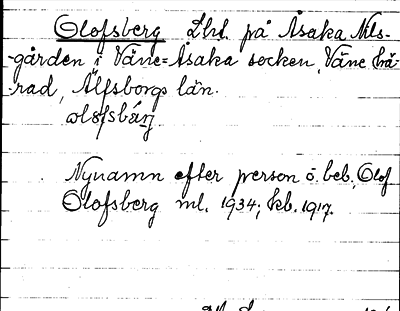 Olofsberg Lht. på Åsaka Nils-
-gården i Väne-Åsaka socken, Väne hä-
-rad, Älfsborgs län.
Nynamn efter person o. beb., Olof
Olofsberg ml. 1934; kb. 1917.